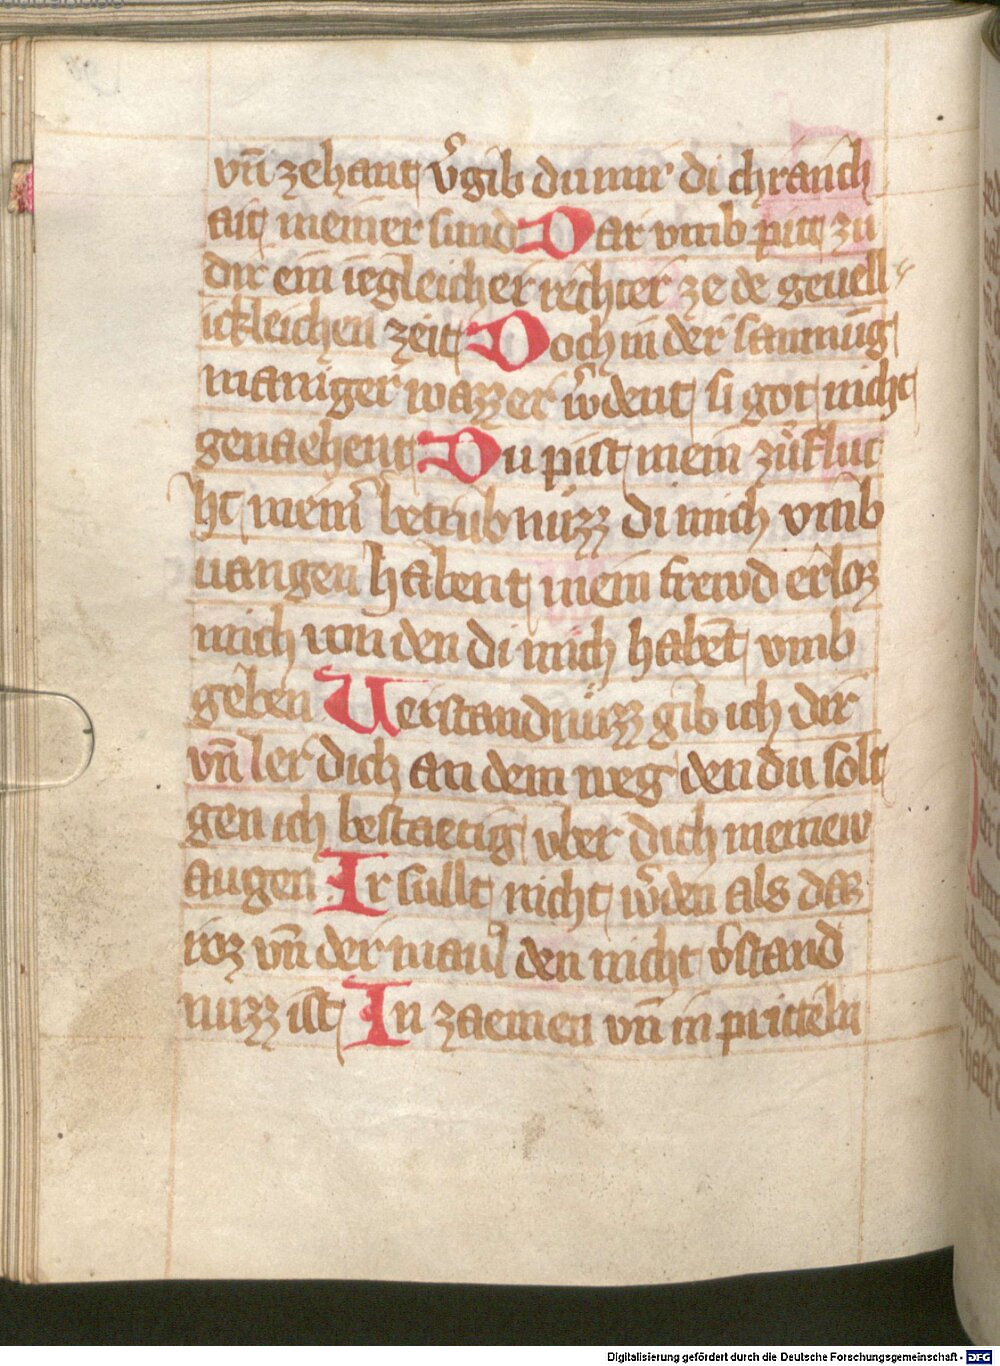 vn̄ zehant v̄gib du mir di chranch
ait meiner sund Dar vmb pitt zu
dir ein iegleicher rechter ze de geuell
ickleichen zeit Doch in der samnūg
maniger wazzer w̄dent si got nicht
genaehent Du pist mein zůfluc
ht meīn betrubnuzz di mich vmb
uangen habent mein frewd erloz
mich von den di mich habēt vmb
geben Uerstandnuzz gib ich dir
vn̄ ler dich an dem weg den du solt
gen ich bestaetig vber dich meinew
augen Ir sullt nicht w̄den als daz
roz vn̄ der maul den nicht v̄stand
nuzz ist In zaemen vn̄ in pritteln
Digitalisierung gefördert durch die Deutsche Forschungsgemeinschaft - DFG